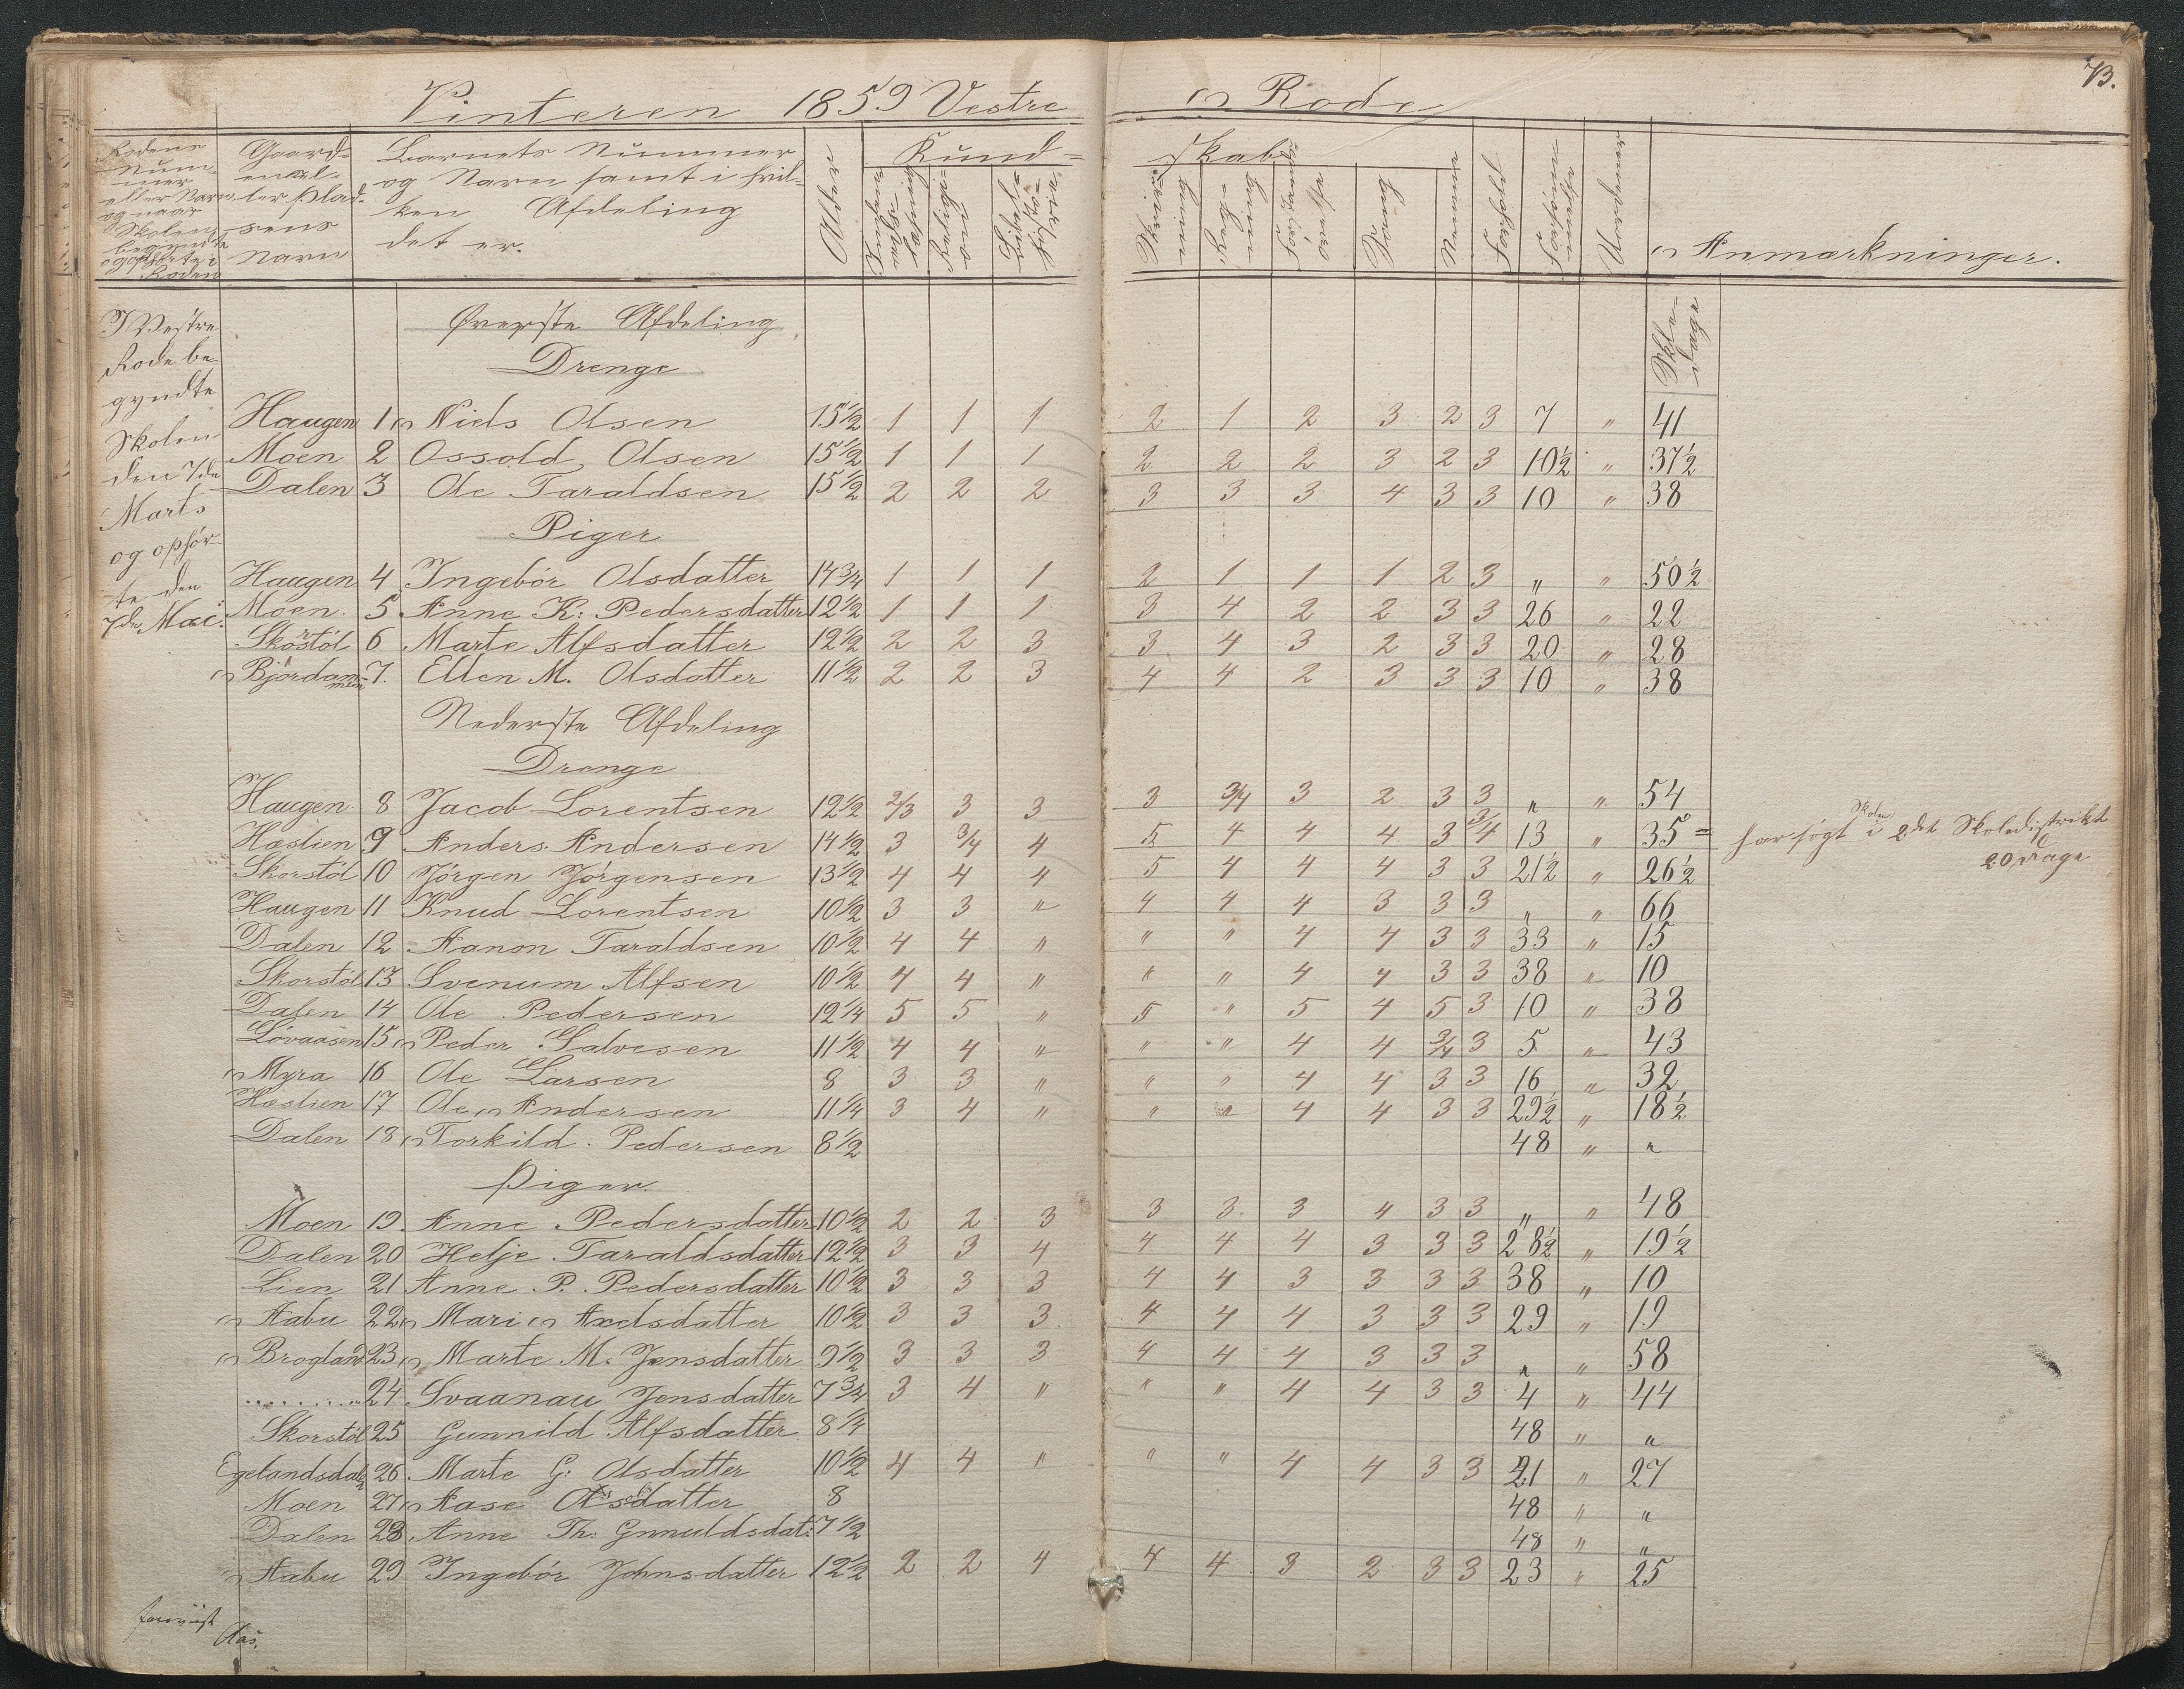 73.
Vinteren 1859 Vestre Rode
Rodens Num-
mer
eller Navn
og naar
Skolen
begyndte
og ophørte i
Roden
Gaard-
ens el-
ler Plad-
sens
Navn
Barnets Nummer
og Navn samt i hvil-
ken Afdeling
det er.
Alder
Kund-
skab
Religi-
on
Bibel-
histo-
rie
Skriv-
ning
Reg-
ning
Forstands-
øvelse
Sang
Nemme
Forhold
Forsøm-
melse
Uordener
Anmærkninger.
I Vestre
Rode be-
gyndte
Skolen
den 7de
Marts
og ophør-
te den
7de Mai.
Skole-
dage
Øverste Afdeling
Drenge
Haugen 1 Niels Olsen 15½ 1 1 1 2 1 2 3 2 3 7 " 41
Moen 2 Ossold Olsen 15½ 1 1 1 2 2 2 3 2 3 10½ " 37½
Dalen 3 Ole Taraldsen 15½ 2 2 2 3 3 3 4 3 3 10 " 38
Piger
Haugen 4 Ingebór Olsdatter 14¾ 1 1 1 2 1 1 1 2 3 " " 50½
Moen. 5 Anne K: Pedersdatter 12½ 1 1 1 3 4 2 2 3 3 26 " 22
Skorstöl 6 Marte Alfsdatter 12½ 2 2 3 3 4 3 2 3 3 20 " 28
Bjordammen 7. Ellen M. Olsdatter 11½ 2 2 3 4 4 2 3 3 3 10 " 38
Nederste Afdeling
Drenge
Haugen 8 Jacob Lorentsen 12½ 2/3 3 3 3 3/4 3 2 3 3 " " 54
Hæslien 9 Anders Andersen 14½ 3 3/4 4 5 4 4 4 3 3/4 13 " 35 = har søgt Skolen i 2det Skoledistrikt
20 Dage
Skorstöl 10 Jørgen Jørgensen 13½ 4 4 4 5 4 4 4 3 3 21½ " 26½
Haugen 11 Knud Lorentsen 10½ 3 3 " 4 4 4 3 3 3 " " 66
Dalen 12 Aanon Taraldsen 10½ 4 4 " " " 4 4 3 3 33 " 15
Skorstöl 13 Svenum Alfsen 10½ 4 4 " " " 4 4 3 3 38 " 10
Dalen 14 Ole Pedersen 12¼ 5 5 " 5 " 5 4 5 3 10 " 38
Lövaasen 15 Peder Salvesen 11½ 4 4 " " " 4 4 3/4 3 5 " 43
Myra 16 Ole Larsen 8 3 3 " " " 4 4 3 3 16 " 32
Hæslien 17 Ole Andersen 11¼ 3 4 " " " 4 4 3 3 29½ " 18½
Dalen 18 Torkild. Pedersen 8½ 48 " "
Piger.
Moen 19. Anne Pedersdatter 10½ 2 2 3 3 3 3 4 3 3 " " 48
Dalen 20 Helje Taraldsdatter 12½ 3 3 4 4 4 4 3 3 3 28½ " 19½
Lien 21 Anne P. Pedersdatter 10½ 3 3 3 4 4 3 3 3 3 38 " 10
Aabu 22 Mari Axelsdatter 10½ 3 3 3 4 4 4 3 3 3 29 " 19
Brogland 23 Marte M. Jensdatter 9½ 3 3 3 4 4 4 3 3 3 " " 58
........" 24 Svaanau Jensdatter 7¾ 3 4 " " " 4 4 3 3 4 " 44
Skorstöl 25 Gunnild Alfsdatter 8¼ 48 " "
Egelandsdalen 26. Marte G: Olsdatter 10½ 4 4 " " " 4 4 3 3 21 " 27
Moen 27 Aase Olsdatter 8 48 " "
Dalen 28 Anne Th: Gunuldsdat: 7½ 48 " "
Aabu 29 Ingebór Johnsdatter 12½ 2 2 4 4 4 3 2 3 3 23 " 25
forevist
Aas.